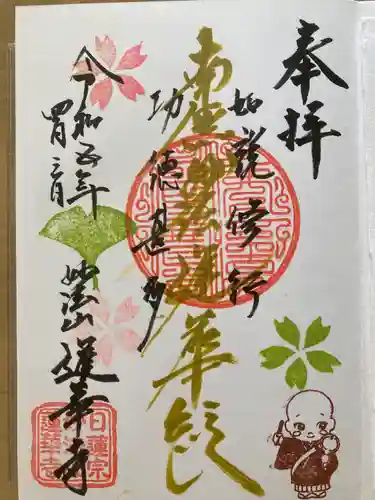 奉拝
如説修行
南無妙法蓮華経
功徳甚多
令和五年
四月二日
妙法山 蓮華寺
日蓮宗
蓮華寺